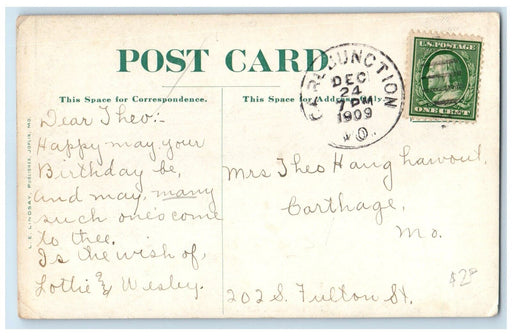 POST CARD.
This Space for Correspondence.
This Space for Address Only.
JUNCTION
DEC
24
7 PM
1909
MO.
U.S. POSTAGE
ONE CENT
Dear Theo:-
Happy may your
Birthday be,
and may, many
such one's come
to thee.
Is the wish of,
Lottie & Wesley.
Mrs Theo
Carthage,
Mo.
202 S. Fulton St.
L.E. LINDSAY, PUBLISHER, JOPLIN, MO.